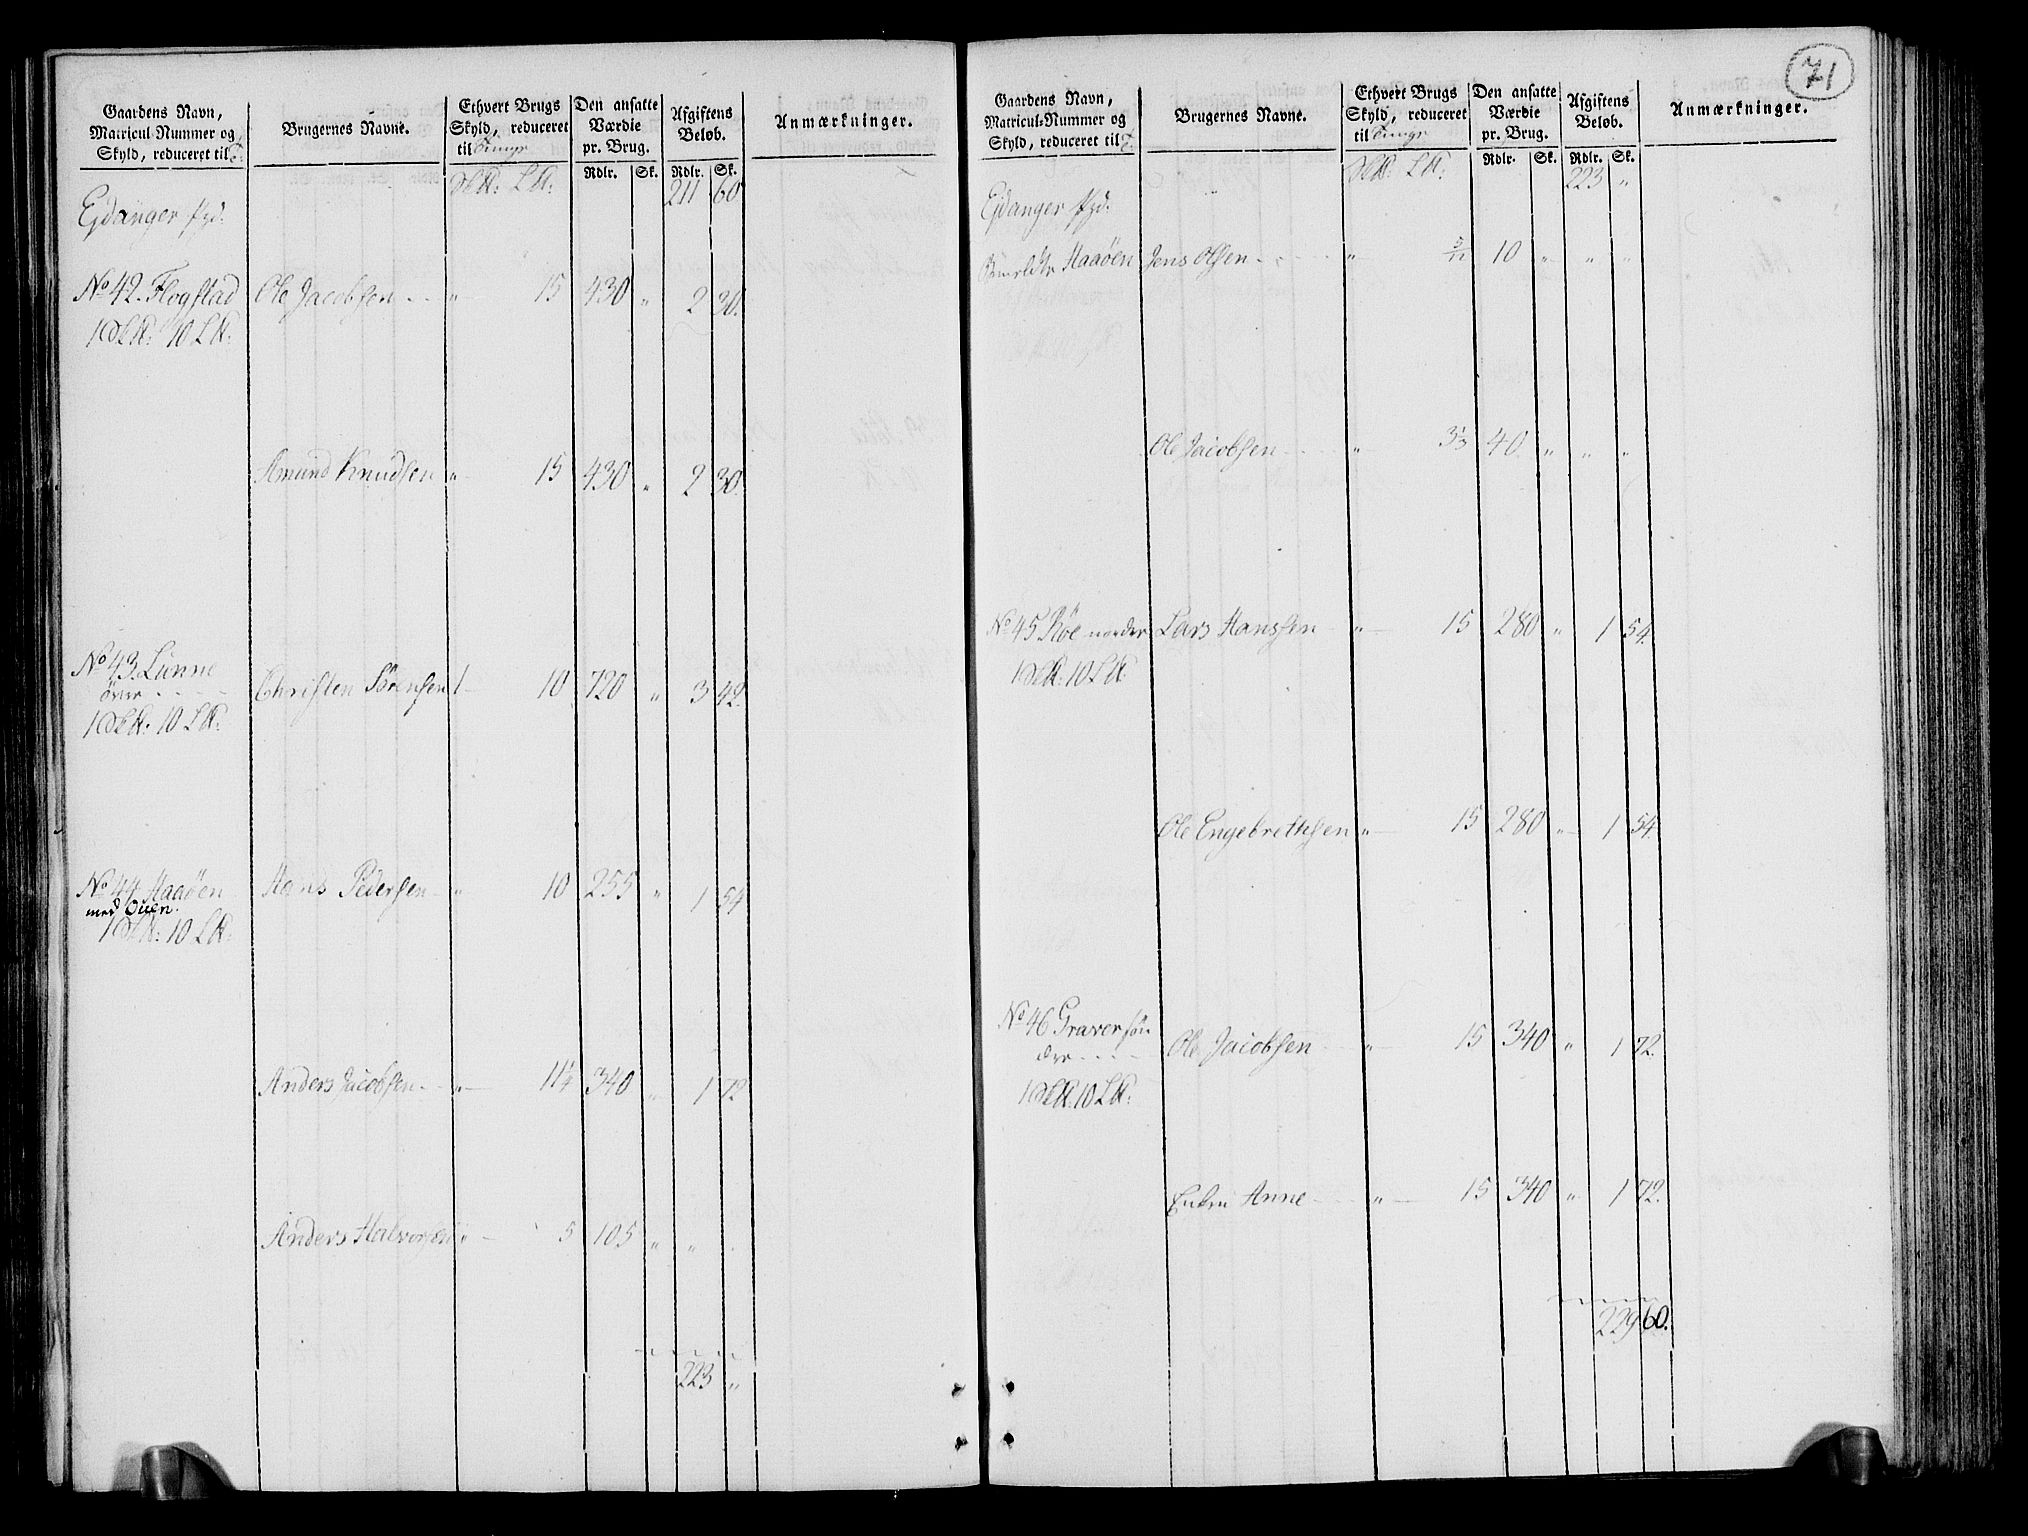 71
Gaardens Navn, Matricul-Nummer og Skyld, reduceret til
Brugernes Navne.
Ethvert Brugs Skyld, reduceret til Tunge
Den ansatte Værdie pr. Brug.
Afgiftens Beløb.
Anmærkninger.
Rdlr. Sk. Rdlr. Sk.
211 60
Ejdanger
No 42. Flogstad Ole Jacobsen " 15 430 " 2 30.
1 10
Amund Knudsen " 15 430 " 2 30.
No 43. Lunne Christen Sörensen 1 10 720 " 3 42.
övre
1 10
No 44 Haaöen Hans Pedersen " 10 255 " 1 54
med Ouen.
1 10
Anders Jacobsen " 11¼ 340 " 1 72
Anders Halvorsen " 5 105 " "
223 "
Gaardens Navn, Matricul-Nummer og Skyld, reduceret til
Brugernes Navne.
Ethvert Brugs Skyld, reduceret til Tunge
Den ansatte Værdie pr. Brug.
Afgiftens Beløb.
Anmærkninger.
Rdlr. Sk. Rdlr. Sk.
223 "
Ejdanger
Haaöen Jens Olsen " 10 " " "
Ole Jacobsen " 3⅓ 40 " " "
No 45 Röe nordre Lars Hanssen " 15 280 " 1 54.
1 10
Ole Engebrethsen " 15 280 " 1 54.
No 46 Graver sön
dre Ole Jacobsen " 15 340 " 1 72.
1 10
Enken Anne " 15 340 " 1 72.
229 60.